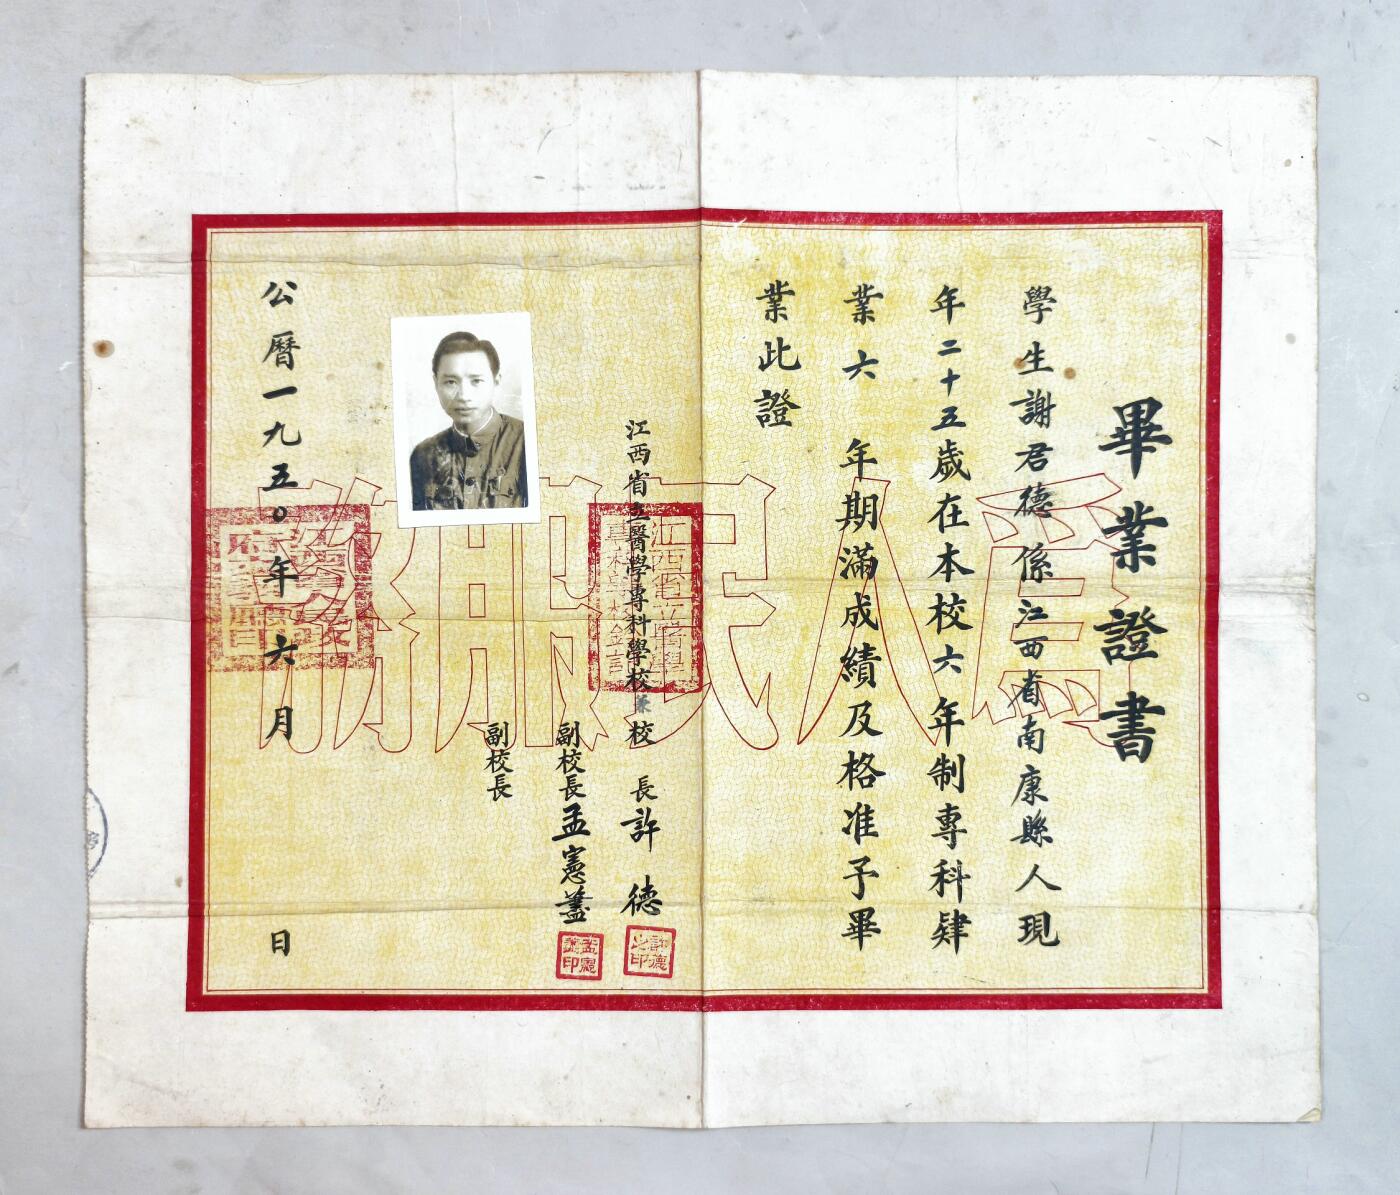 畢業證書
學生謝君德係江西省南康縣人現
年二十五歲在本校六年制專科肄
業六年期滿成績及格准予畢
業此證
江西省立醫學專科學校兼校長許德
副校長孟憲藎
副校長
公曆一九五〇年六月日
為人民服務
許德之印
孟憲藎印